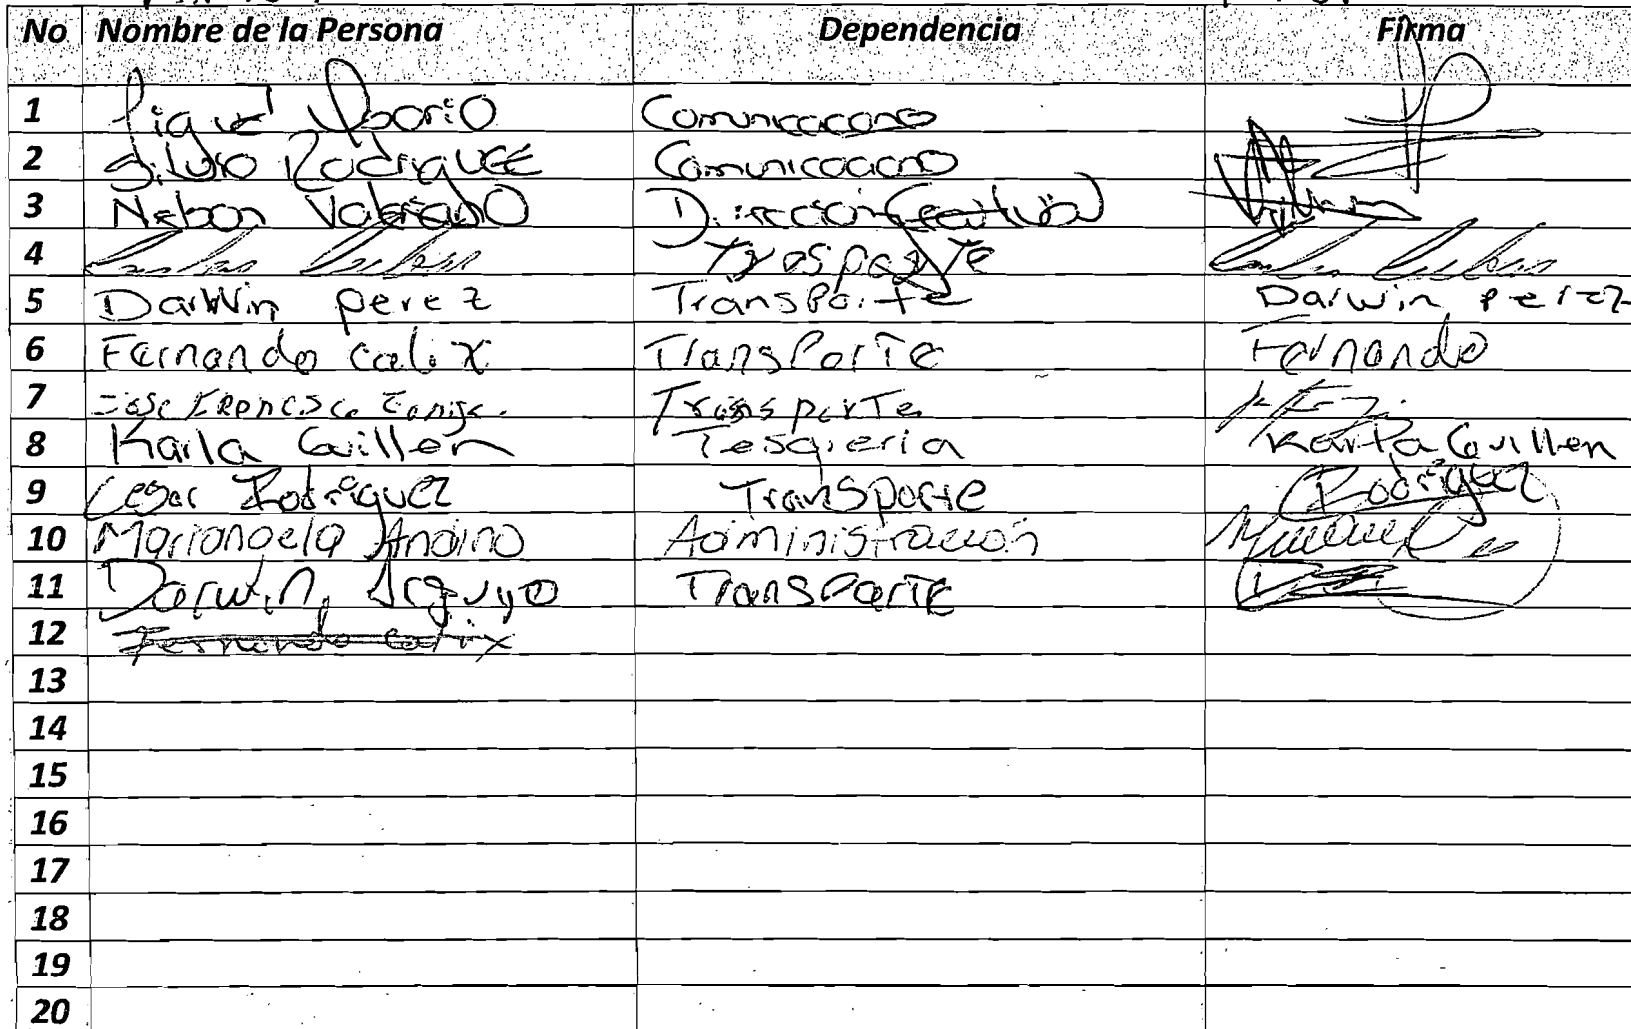 No Nombre de la Persona Dependencia Firma
1 Osorio Comunicaciones
2 Silvio Rodriguez Comunicaciono
3 Nelson Valeriano Dirección
4 Trasparte
5 Darwin perez Transporte Darwin perez
6 Fernando calix Transporte Fernando
7 Jose Transporte
8 Karla Guillen Tesoreria Karla Guillen
9 Cesar Rodriguez Transporte Rodriguez
10 Mariangela Andino Administración
11 Darwin Transporte
12 Fernando calix
13
14
15
16
17
18
19
20